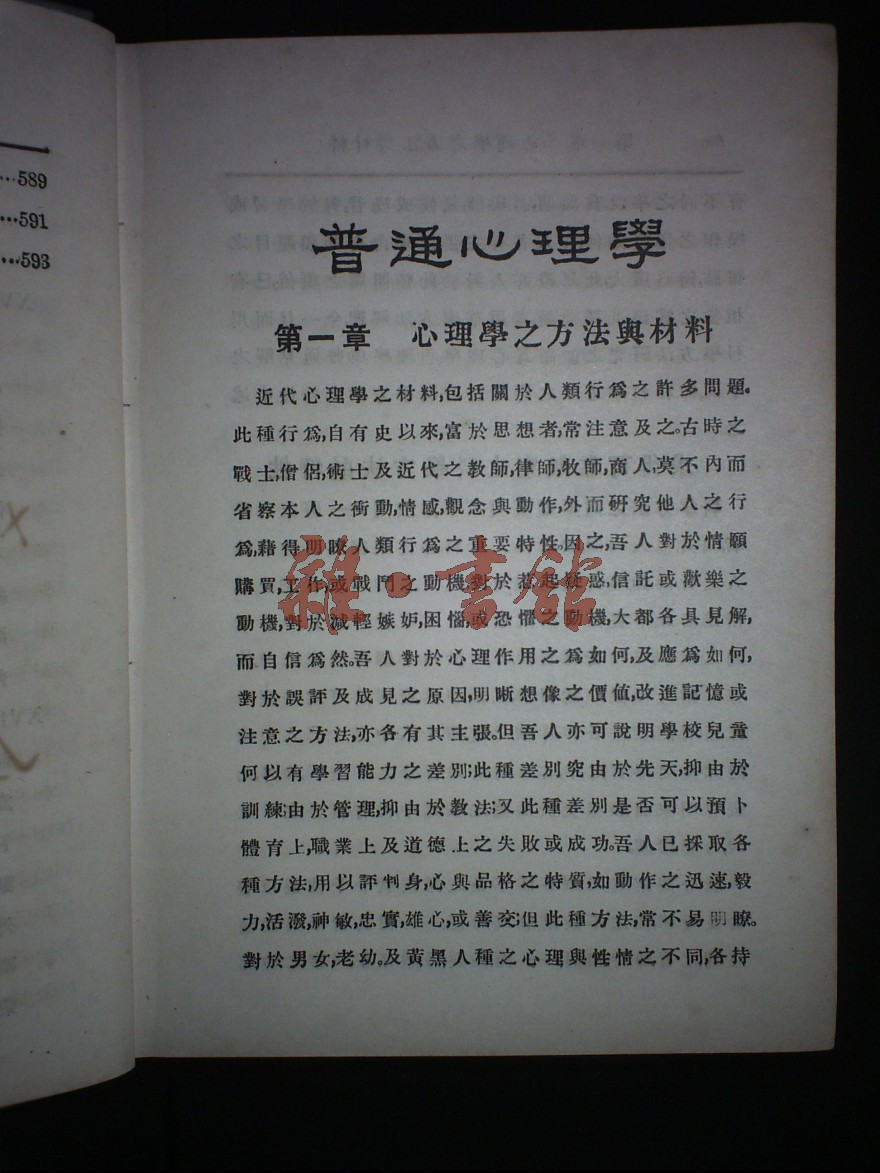 …589
…591
…593
普通心理學
第一章 心理學之方法與材料
近代心理學之材料,包括關於人類行爲之許多問題。
此種行爲,自有史以來,富於思想者,常注意及之。古時之
戰士,僧侶,術士及近代之教師,律師,牧師,商人,莫不內而
省察本人之衝動,情感,觀念與動作,外而研究他人之行
爲,藉得明瞭人類行爲之重要特性。因之,吾人對於情願
購買,工作,或戰鬥之動機,對於惹起疑惑,信託或歡樂之
動機,對於減輕嫉妒,困惱,或恐懼之動機,大都各具見解,
而自信爲然。吾人對於心理作用之爲如何,及應爲如何,
對於誤評及成見之原因,明晰想像之價値,改進記憶或
注意之方法,亦各有其主張。但吾人亦可說明學校兒童
何以有學習能力之差別;此種差別究由於先天,抑由於
訓練;由於管理,抑由於教法;又此種差別是否可以預卜
體育上,職業上及道德上之失敗或成功。吾人已採取各
種方法,用以評判身,心與品格之特質,如動作之迅速,毅
力,活潑,神敏,忠實,雄心,或善交;但此種方法,常不易明瞭。
對於男女,老幼。及黃黑人種之心理與性情之不同,各持
雜·書館